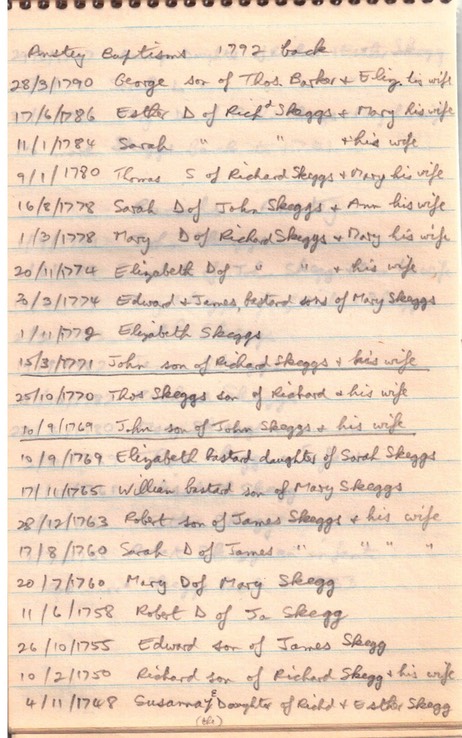 Anstey Baptisms 1792 back
28/3/1790 George son of Thos. Barker + Eliz. his wife
17/6/1786 Esther D of Richd Skeggs + Mary his wife
11/1/1784 Sarah " " + his wife
9/1/1780 Thomas S of Richard Skeggs + Mary his wife
16/8/1778 Sarah D of John Skeggs + Ann his wife
1/3/1778 Mary D of Richard Skeggs + Mary his wife
20/11/1774 Elizabeth D of " " + his wife
3/1774 Edward + James, bastard sons of Mary Skeggs
1/11/1772 Elizabeth Skeggs
15/3/1771 John son of Richard Skeggs + his wife
25/10/1770 Thos Skeggs son of Richard + his wife
10/9/1769 John son of John Skeggs + his wife
10/9/1769 Elizabeth bastard daughter of Sarah Skeggs
17/11/1765 William bastard son of Mary Skeggs
28/12/1763 Robert son of James Skeggs + his wife
17/8/1760 Sarah D of James " " " "
20/7/1760 Mary D of Mary Skegg
11/6/1758 Robert D of Ja Skegg
26/10/1755 Edward son of James Skegg
10/2/1750 Richard son of Richard Skegg + his wife
4/11/1748 Susanna ye Daughter of Richd + Esther Skegg
(the)